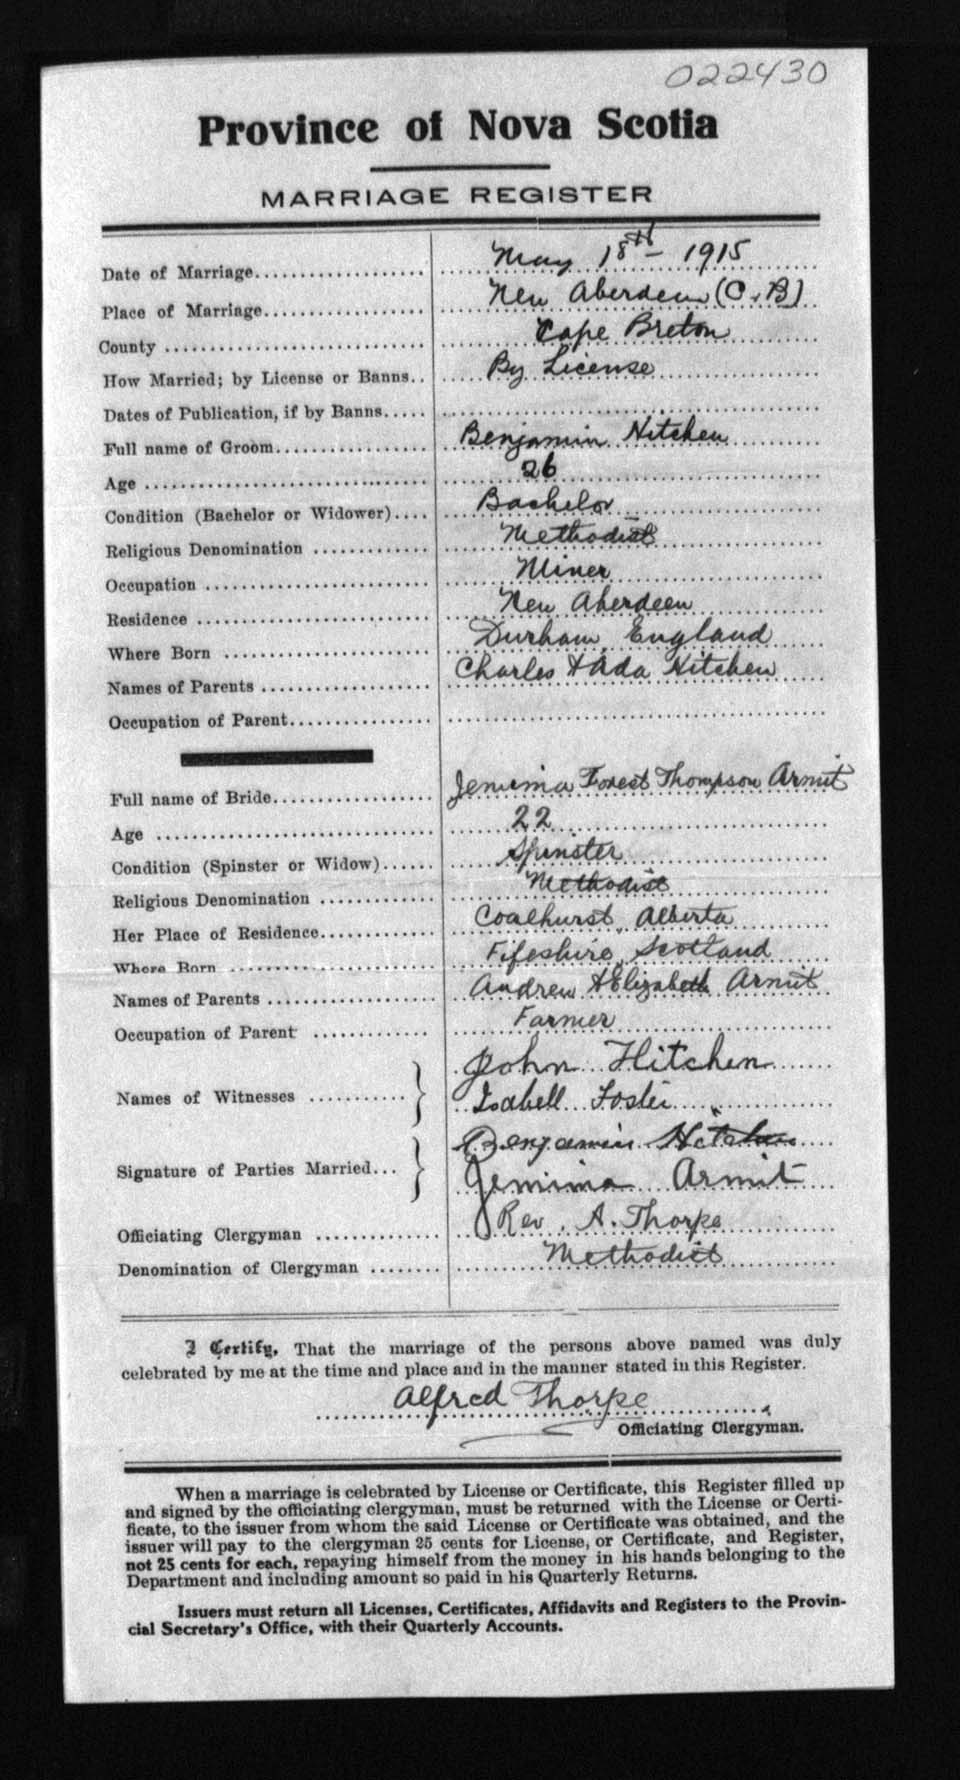 022430
Province of Nova Scotia
MARRIAGE REGISTER
Date of Marriage.................. May 18th - 1915
Place of Marriage.................. New Aberdeen (C.B)
County .................. Cape Breton
How Married; by License or Banns.. By License
Dates of Publication, if by Banns.....
Full name of Groom.................. Benjamin Hitchen
Age .................. 26
Condition (Bachelor or Widower).... Bachelor
Religious Denomination ............ Methodist
Occupation .................. Miner
Residence .................. New Aberdeen
Where Born .................. Durham, England
Names of Parents .................. Charles & Ada Hitchen
Occupation of Parent..................
Full name of Bride.................. Jemima Forest Thompson Armit
Age .................. 22
Condition (Spinster or Widow)...... Spinster
Religious Denomination ............ Methodist
Her Place of Residence............. Coalhurst, Alberta
Where Born .................. Fifeshire, Scotland
Names of Parents .................. Andrew & Elizabeth Armit
Occupation of Parent ............. Farmer
Names of Witnesses ........... } John Hitchen
Isabell Foster
Signature of Parties Married... } Benjamin Hitchen
Jemima Armit
Officiating Clergyman .............. Rev. A. Thorpe
Denomination of Clergyman ........ Methodist
I Certify, That the marriage of the persons above named was duly
celebrated by me at the time and place and in the manner stated in this Register.
Alfred Thorpe
Officiating Clergyman.
When a marriage is celebrated by License or Certificate, this Register filled up
and signed by the officiating clergyman, must be returned with the License or Certi-
ficate, to the issuer from whom the said License or Certificate was obtained, and the
issuer will pay to the clergyman 25 cents for License, or Certificate, and Register,
not 25 cents for each, repaying himself from the money in his hands belonging to the
Department and including amount so paid in his Quarterly Returns.
Issuers must return all Licenses, Certificates, Affidavits and Registers to the Provin-
cial Secretary's Office, with their Quarterly Accounts.